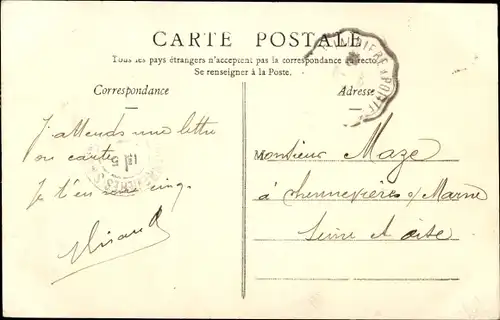 CARTE POSTALE
Tous les pays étrangers n'acceptent pas la correspondance au recto.
Se renseigner à la Poste.
Correspondance
Adresse
J'attends une lettre
ou carte
Je t'en
cinq
Monsieur Maze
à Chennevières s/ Marne
Seine et Oise